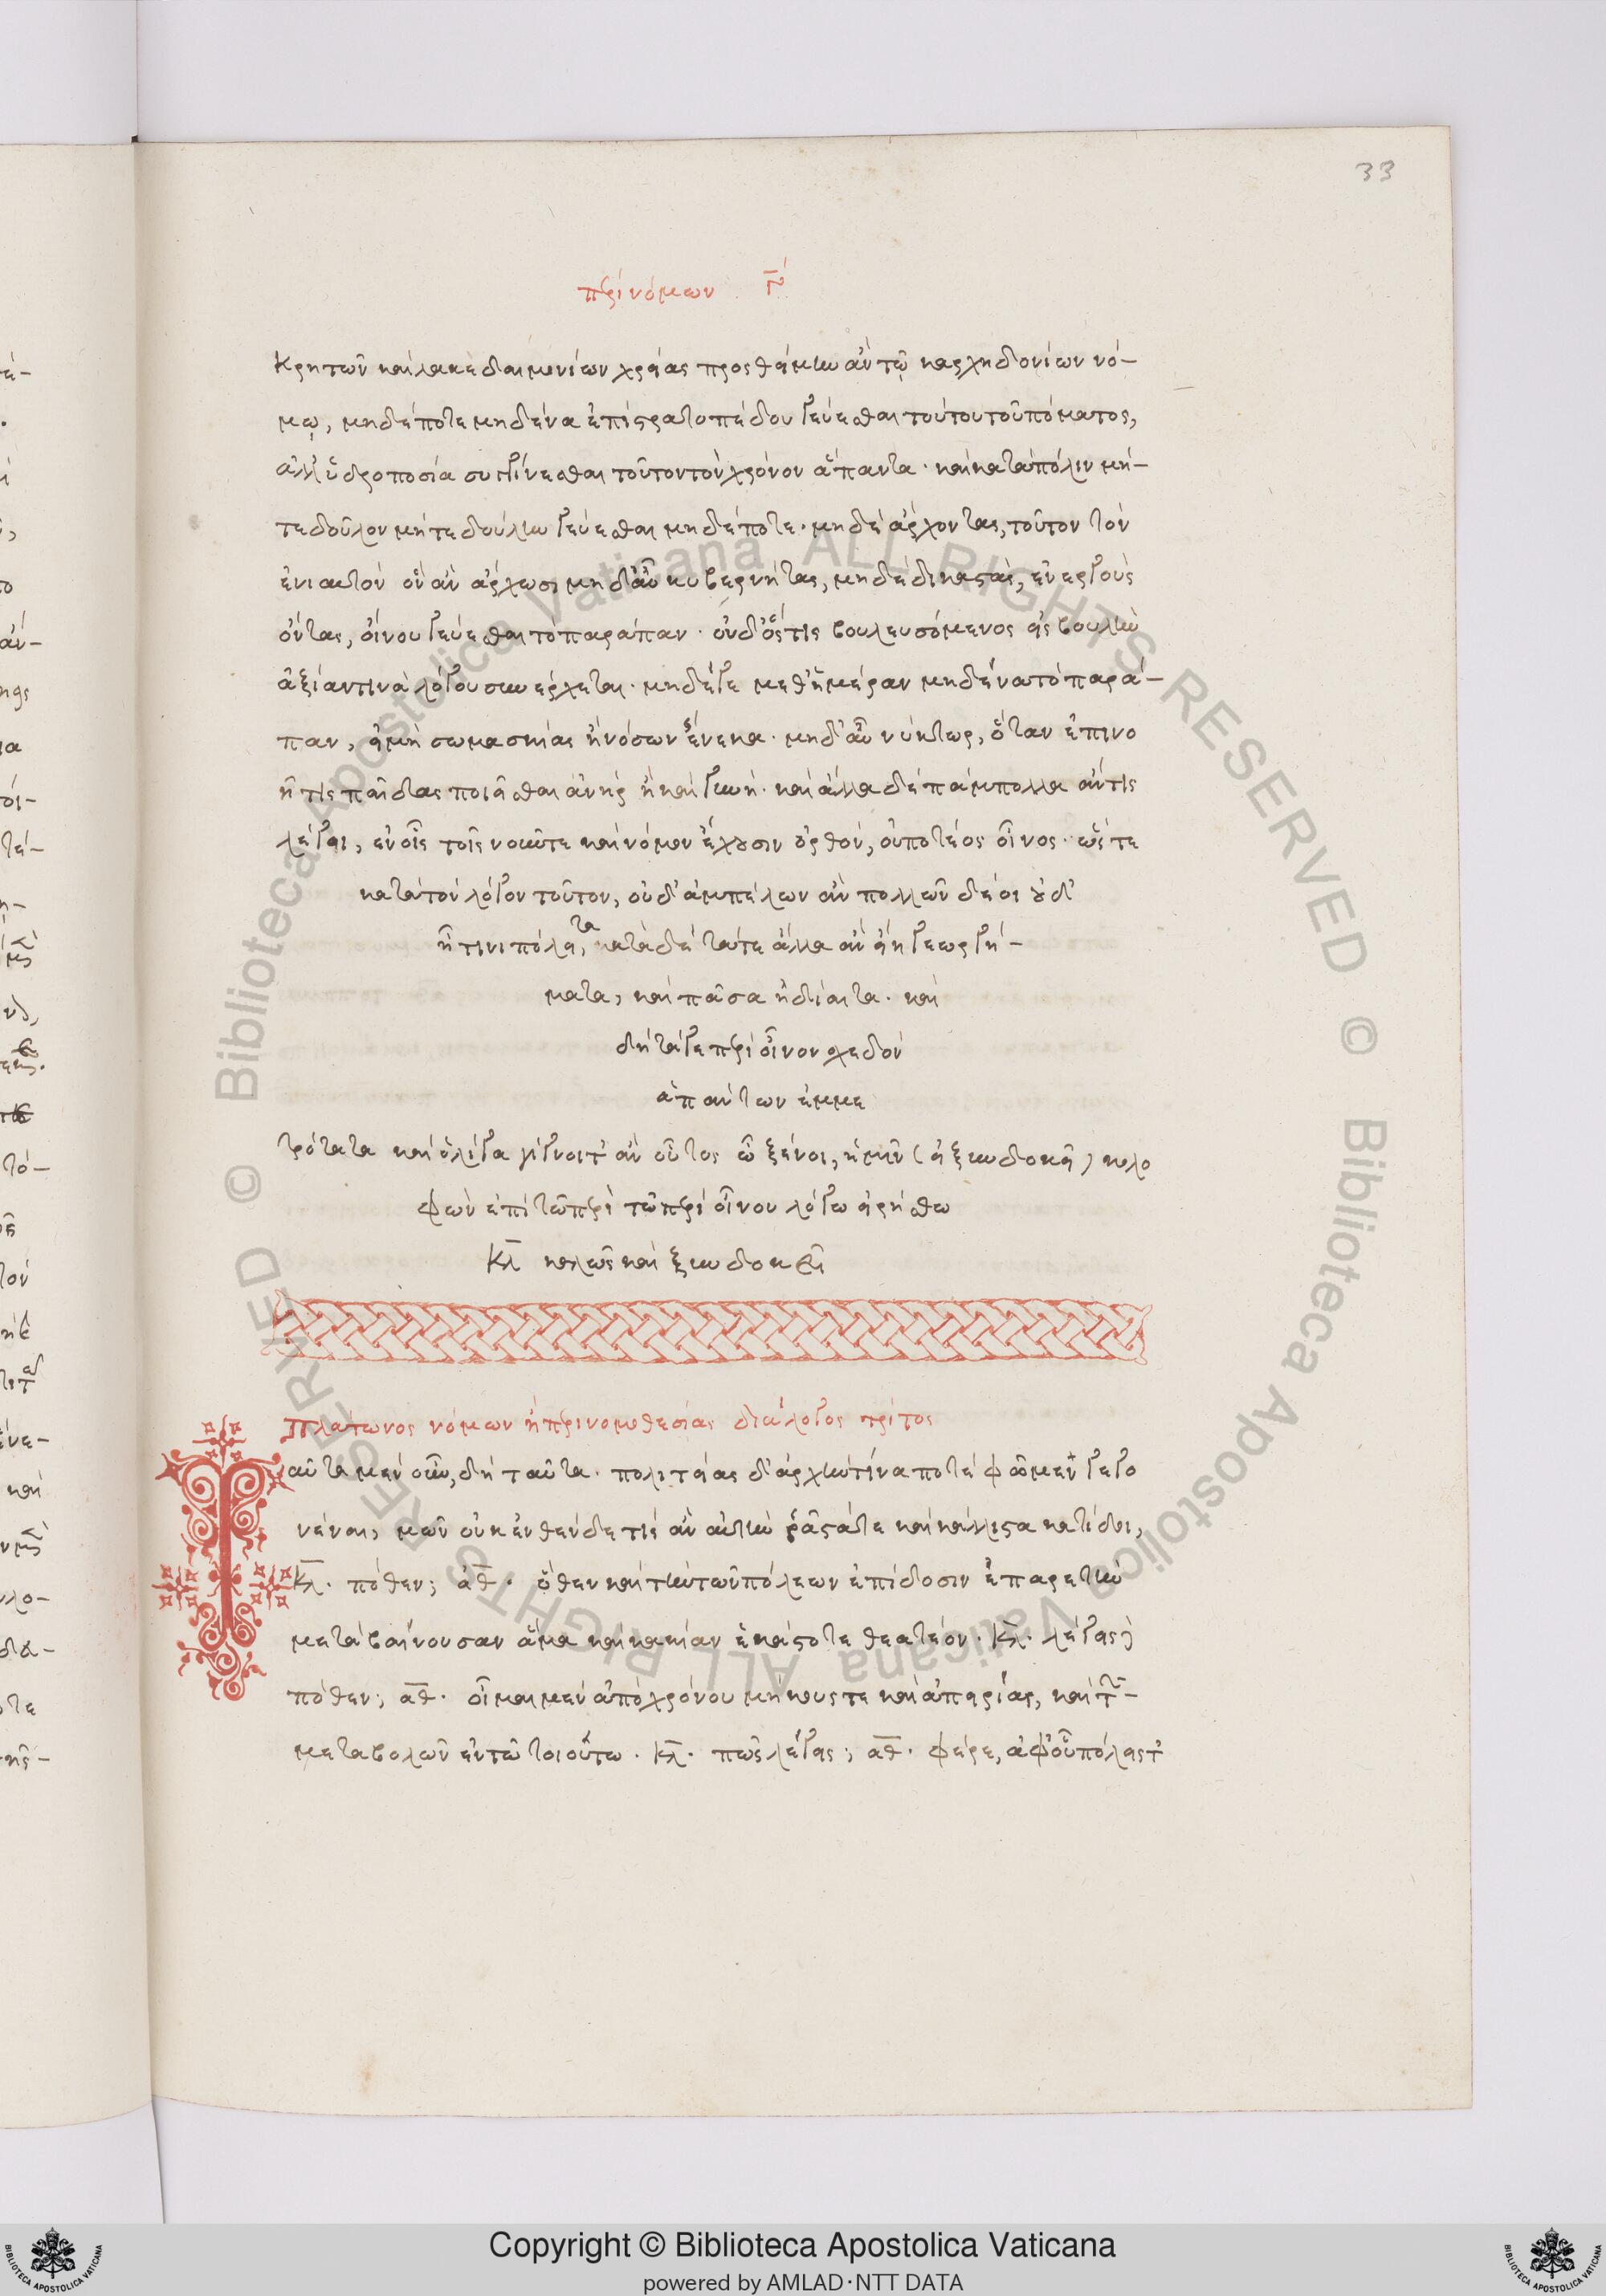 33
περὶ νόμων γ̅
κρητῶν καὶ λακεδαιμονίων χρείας προσθείμην ἂν τῷ καρχηδονίων νό-
μῳ, μηδέποτε μηδένα ἐπὶ στρατοπέδου γεύεσθαι τούτου τοῦ πόματος,
ἀλλ' ὑδροποσία συγγίνεσθαι τοῦτον τὸν χρόνον ἅπαντα· καὶ κατὰ πόλιν μή-
τε δοῦλον μήτε δούλην γεύεσθαι μηδέποτε· μηδὲ ἄρχοντας, τοῦτον τὸν
ἐνιαυτὸν ὃν ἂν ἄρχωσι μηδ' αὖ κυβερνήτας, μηδὲ δικαστὰς, ἐνεργοὺς
ὄντας, οἴνου γεύεσθαι τὸ παράπαν· οὐδ' ὅστις βουλευσόμενος εἰς βουλὴν
ἀξίαν τινὰ λόγου συνέρχεται· μηδέ γε μεθ' ἡμέραν μηδένα τὸ παρά-
παν, εἰ μὴ σωμασκίας ἢ νόσων ἕνεκα· μηδ' αὖ νύκτωρ, ὅταν ἐπινο
ῆ τις παῖδας ποιεῖσθαι ἀνὴρ ἢ καὶ γυνή· καὶ ἄλλα δὲ πάμπολλα ἄν τις
λέγοι, ἐν οἷς τοῖς νοῦντε καὶ νόμον ἔχουσιν ὀρθόν, οὐ ποτέος οἶνος· ὥστε
κατὰ τὸν λόγον τοῦτον, οὐδ' ἀμπέλων ἂν πολλῶν δέοι οὐδ'
ᾗ τινι πόλει, τακατὰ δὲ τά τε ἄλλα ἂν εἴη γεωργή-
ματα, καὶ πᾶσα ἡ δίαιτα· καὶ
δὴ τά γε περὶ οἶνον σχεδὸν
ἁπάντων ἐμμε
τρότατα καὶ ὀλίγα γίγνοιτ' ἂν οὗτος ὦ ξένοι, ἡμῖν (εἰ ξυνδοκεῖ) κολο
φὼν ἐπὶ τῶ περὶ τῶ περὶ οἴνου λόγω εἰρήσθω
Κλ καλῶς καὶ ξυνδοκεῖ
Πλάτωνος νόμων ἢ περὶ νομοθεσίας διάλογος τρίτος
Ταῦτα μὲν οὖν, δὴ ταῦτα· πολιτείας δ' ἀρχὴν τίνα ποτὲ φῶμεν γεγο
νέναι, μῶν οὐκ ἐνθένδε τις ἂν αὐτὴν ῥᾷστά τε καὶ κάλλιστα κατίδοι,
Κλ· πόθεν; ἀθ· ὅθεν καὶ τὴν τῶν πόλεων ἐπίδοσιν ἐπ' ἀρετὴν
μεταβαίνουσαν ἅμα καὶ κακίαν ἑκάστοτε θεατέον· Κλ· λέγεις δ
πόθεν; ἀθ· οἶμαι μὲν ἀπὸ χρόνου μήκους τε καὶ ἀπειρίας, καὶ τῶν-
μεταβολῶν ἐν τῶ τοιούτω· Κλ· πῶς λέγεις; ἀθ· φέρε, ἀφ' οὗ πόλεις τ'